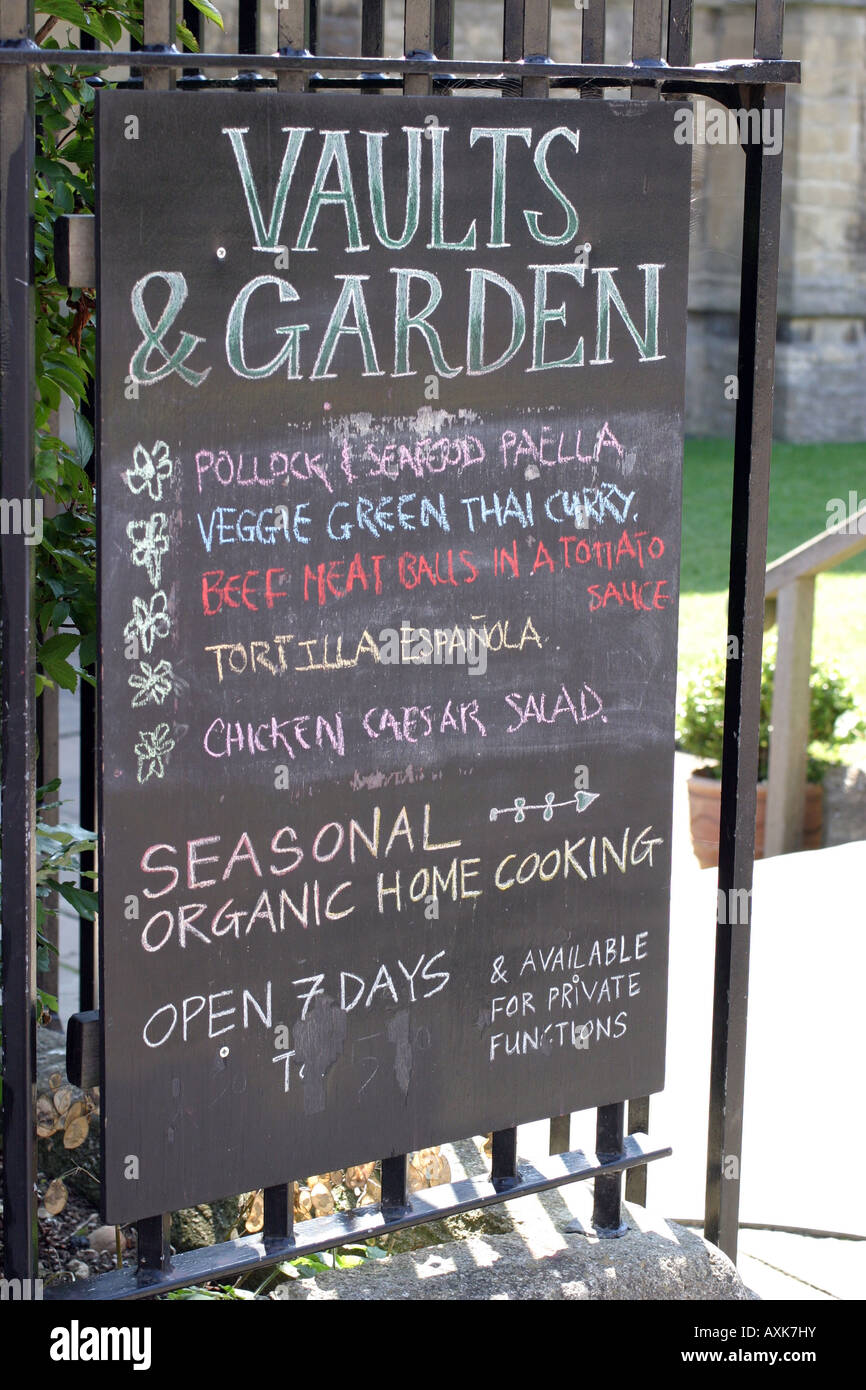 VAULTS
& GARDEN
POLLOCK & SEAFOOD PAELLA
VEGGIE GREEN THAI CURRY.
BEEF MEAT BALLS IN A TOMATO
SAUCE
TORTILLA ESPAÑOLA.
CHICKEN CAESAR SALAD.
SEASONAL
ORGANIC HOME COOKING
OPEN 7 DAYS
& AVAILABLE
FOR PRIVATE
FUNCTIONS
alamy
Image ID: AXK7HY
www.alamy.com